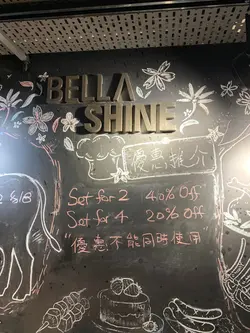 BELLA
SHINE
優惠推介
Set for 2 40% Off
Set for 4 20% Off
"優惠不能同時使用"